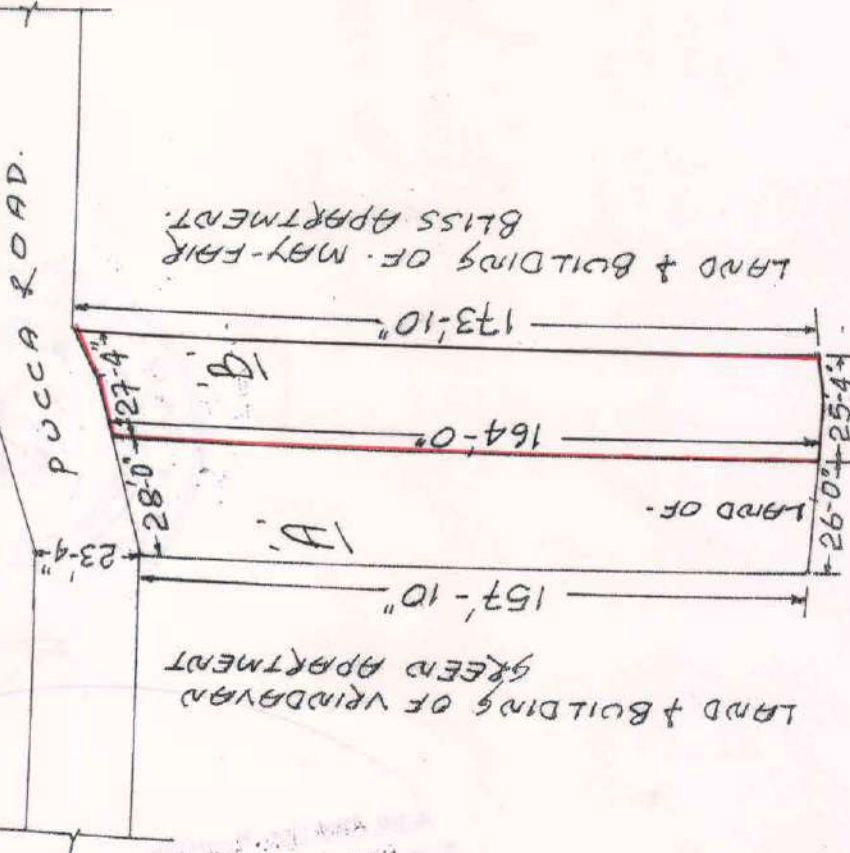 PUCCA ROAD.
LAND & BUILDING OF. MAY-FAIR
BLISS APARTMENT.
173'-10"
27'-4"
'B'
164'-0"
25'-4"
28'-0"
'A'
LAND OF.
26'-0"
23'-4"
157'-10"
LAND & BUILDING OF VRINDAVAN
GREEN APARTMENT